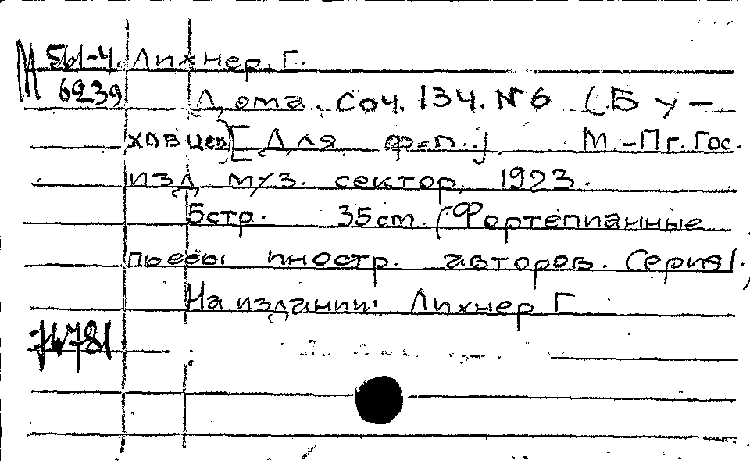 М 5ы-4. Лихнер, Г.
6239 Дома. Соч. 134. №6 (Бу-
ховцев) [Для ф-п.] М.-Пг. Гос.
изд. муз. сектор, 1923.
5стр. 35см. (Фортепианные
пьесы иностр. авторов. Серия I.
На издании: Лихнер Г